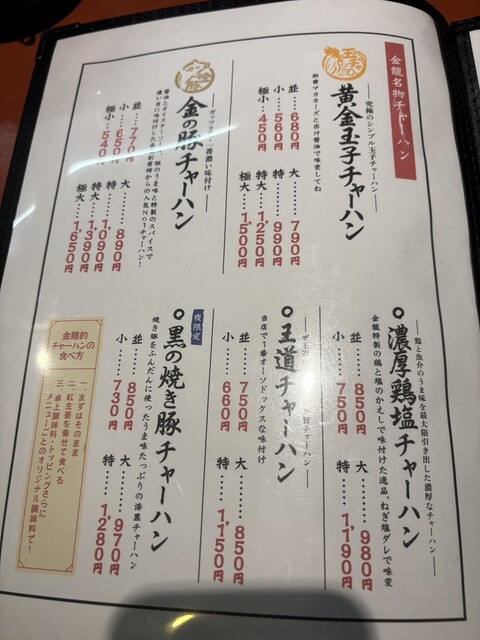 金龍名物チャーハン
玉チャ
黄金玉子チャーハン
究極のシンプル玉子チャーハン
卵黄マヨネーズと出汁醤油で味変してね
並……680円
小……560円
極小…450円
大……790円
特……990円
特大…1,250円
極大…1,500円
金豚
金の豚チャーハン
ガッツリ！一番濃い味付け
醤油とオイスターソース、豚のうま味と特製のスパイスで
濃い目に味付けした
からの人気No1チャーハン！
並……770円
小……650円
極小…540円
大……890円
特……1,090円
特大…1,390円
極大…1,650円
濃厚鶏塩チャーハン
鶏と魚介のうま味を最大限引き出した濃厚なチャーハン
金龍特製の鶏と塩のかえしで味付けた逸品。ねぎ塩ダレで味変
並……850円
小……750円
大……980円
特……1,190円
王道チャーハン
旨チャーハン
当店で1番オーソドックスな味付け
並……750円
小……660円
大……850円
特……1,150円
夜限定
黒の焼き豚チャーハン
焼き豚をふんだんに使ったうま味たっぷりの漆黒チャーハン
並……850円
小……730円
大……970円
特……1,280円
金龍的
チャーハンの
食べ方
一、まずはそのまま
二、紅生姜を乗せて食べる
三、卓上調味料・トッピングさらに
メニューごとのオリジナル調味料で！